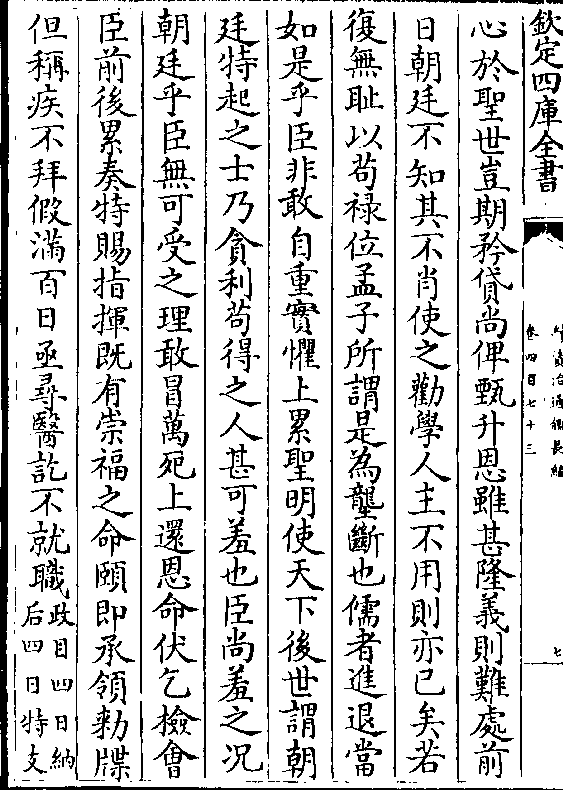 欽定四庫全書
續資治通鑑長編
卷四百七十三
七
心於聖世豈期矜貸尚俾甄升恩雖甚隆義則難處前
日朝廷不知其不肖使之勸學人主不用則亦已矣若
復無耻以茍祿位孟子所謂是為壟斷也儒者進退當
如是乎臣非敢自重實懼上累聖明使天下後世謂朝
廷特起之士乃貪利茍得之人甚可羞也臣尚羞之况
朝廷乎臣無可受之理敢冒萬死上還恩命伏乞檢會
臣前後累奏特賜指揮既有崇福之命頤即承領勅牒
但稱疾不拜假滿百日亟尋醫訖不就職政目四日納
后四日特支